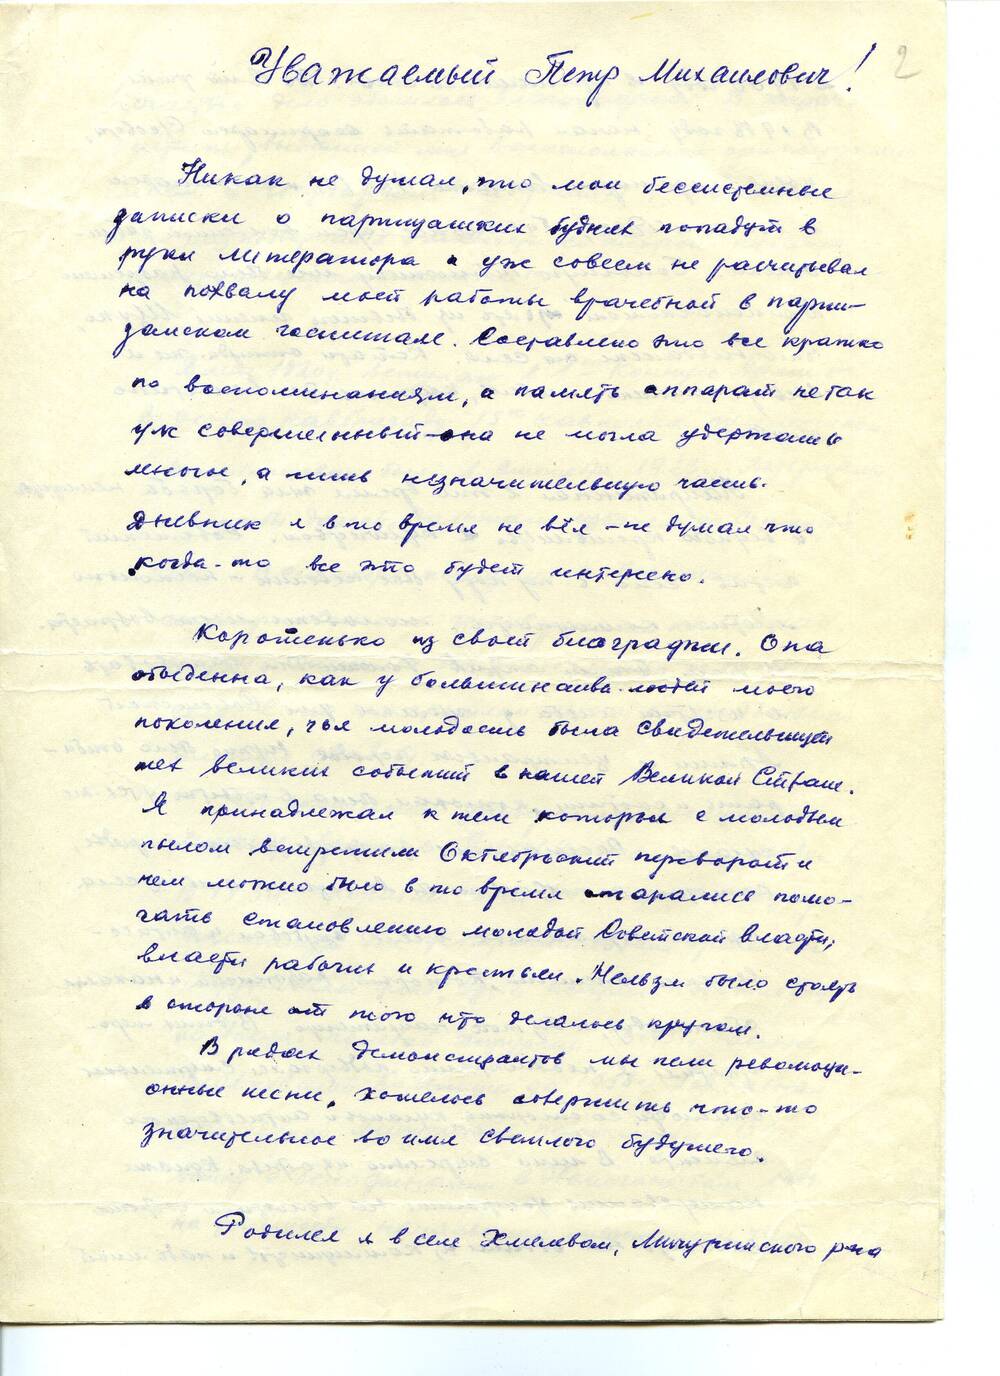 Уважаемый Петр Михайлович!
2
Никак не думал, что мои бессистемные
записки о партизанских буднях попадут в
руки литератора и уж совсем не расчитывал
на похвалу моей работы врачебной в парти-
занском госпитале. Составлено это все кратко
по воспоминаниям, а память аппарат не так
уж совершенный – она не могла удержать
многое, а лишь незначительную часть.
Дневник я в то время не вёл – не думал что
когда-то все это будет интересно.
Коротенько из своей биографии. Она
обыденна, как у большинства людей моего
поколения, чья молодость была свидетельницей
тех великих событий в нашей Великой Стране.
Я принадлежал к тем которые с молодым
пылом встретили Октябрьский переворот и
чем можно было в то время старались помо-
гать становлению молодой Советской Власти,
власти рабочих и крестьян. Нельзя было стоять
в стороне от того что делалось кругом.
В рядах демонстрантов мы пели революци-
онные песни, хотелось совершить что-то
значительное во имя светлого будущего.
Родился я в селе Хмелевом, Мичуринского р-на